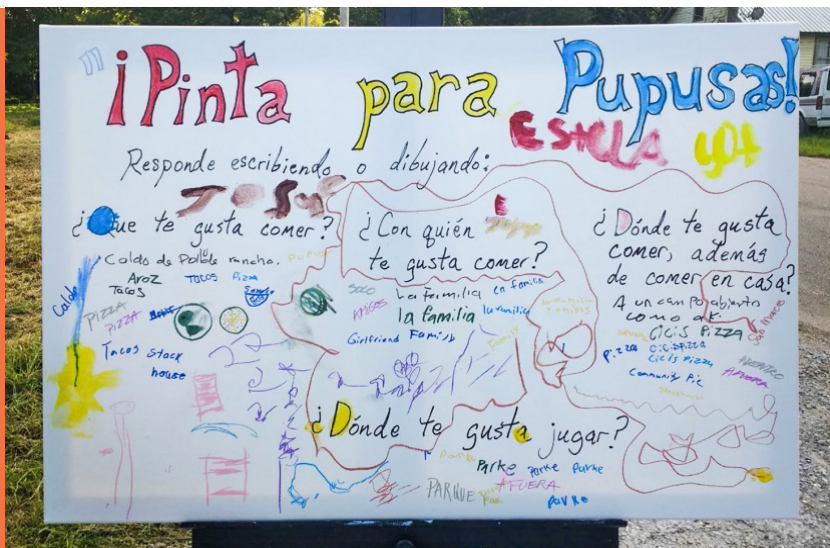 ¡Pinta para Pupusas!
ESTELA
Responde escribiendo o dibujando:
JOSUE
¿Que te gusta comer?
Caldo de Pollo de rancho.
Aroz
Tacos
Tacos Pizza
Caldo
PIZZA
PIZZA
Tacos Stack
house
¿Con quién
te gusta comer?
Solo
Amigos
La Familia
la familia
la familia
Girlfriend Family
Family
¿Dónde te gusta
comer, además
de comer en casa?
A un campo abierto
como aki
San Marcos
CiCis Pizza
Pizza
Cicis Pizza
Community Pie
ADENTRO
AFUERA
¿Dónde te gusta jugar?
Parke
Parke Parke Parke
PARQUE
AFUERA
Parke